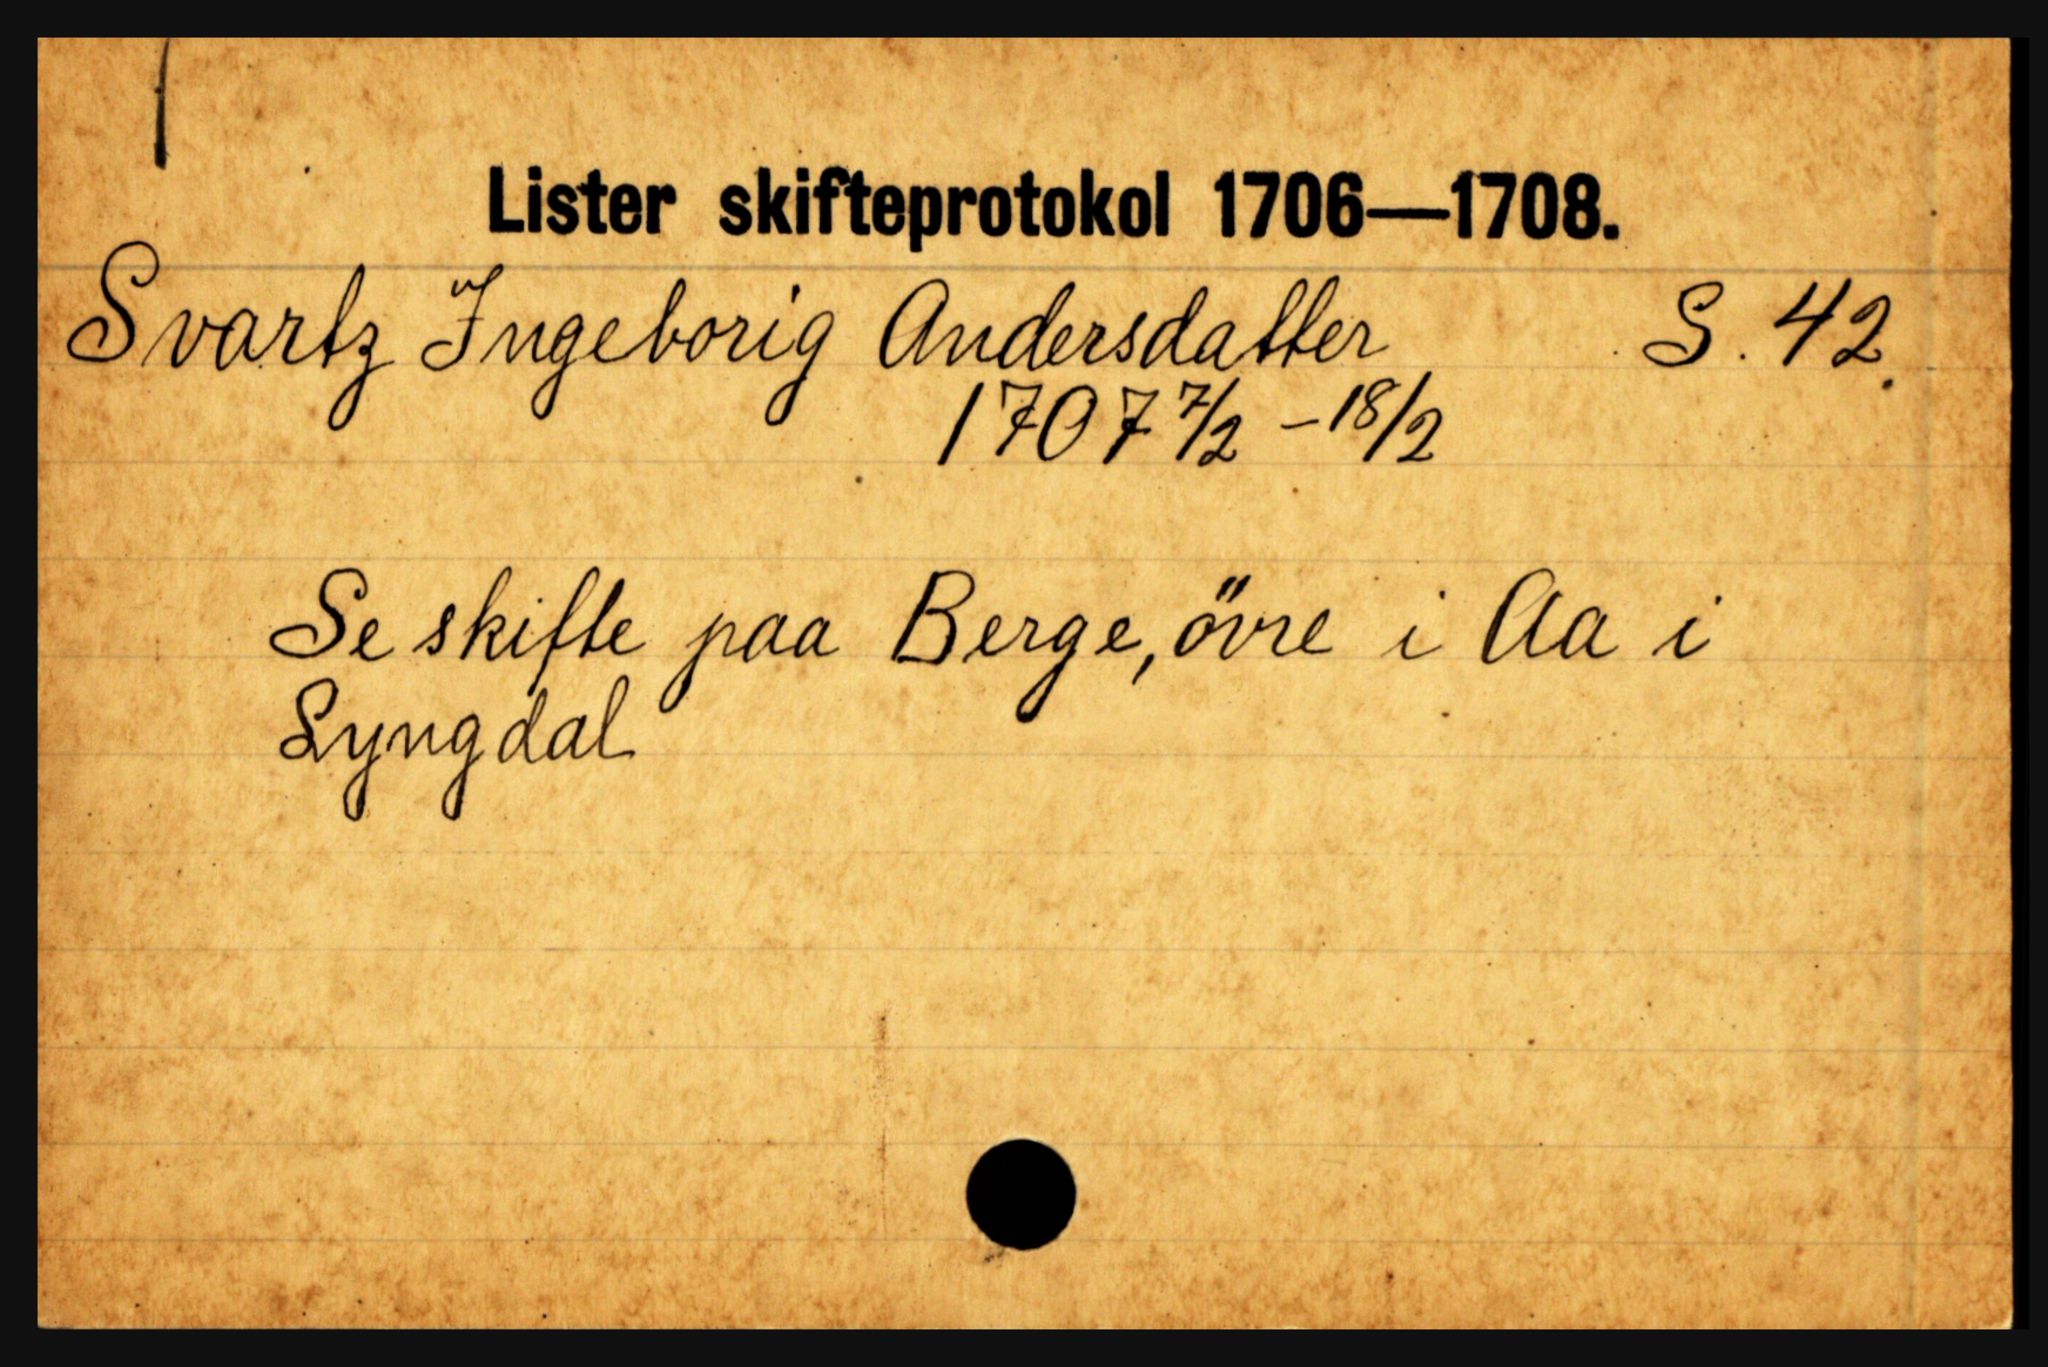 Lister skifteprotokol 1706—1708.
Svartz Ingeborig Andersdatter S. 42.
1707 7/2 – 18/2
Se skifte paa Berge, övre i Aa i
Lyngdal